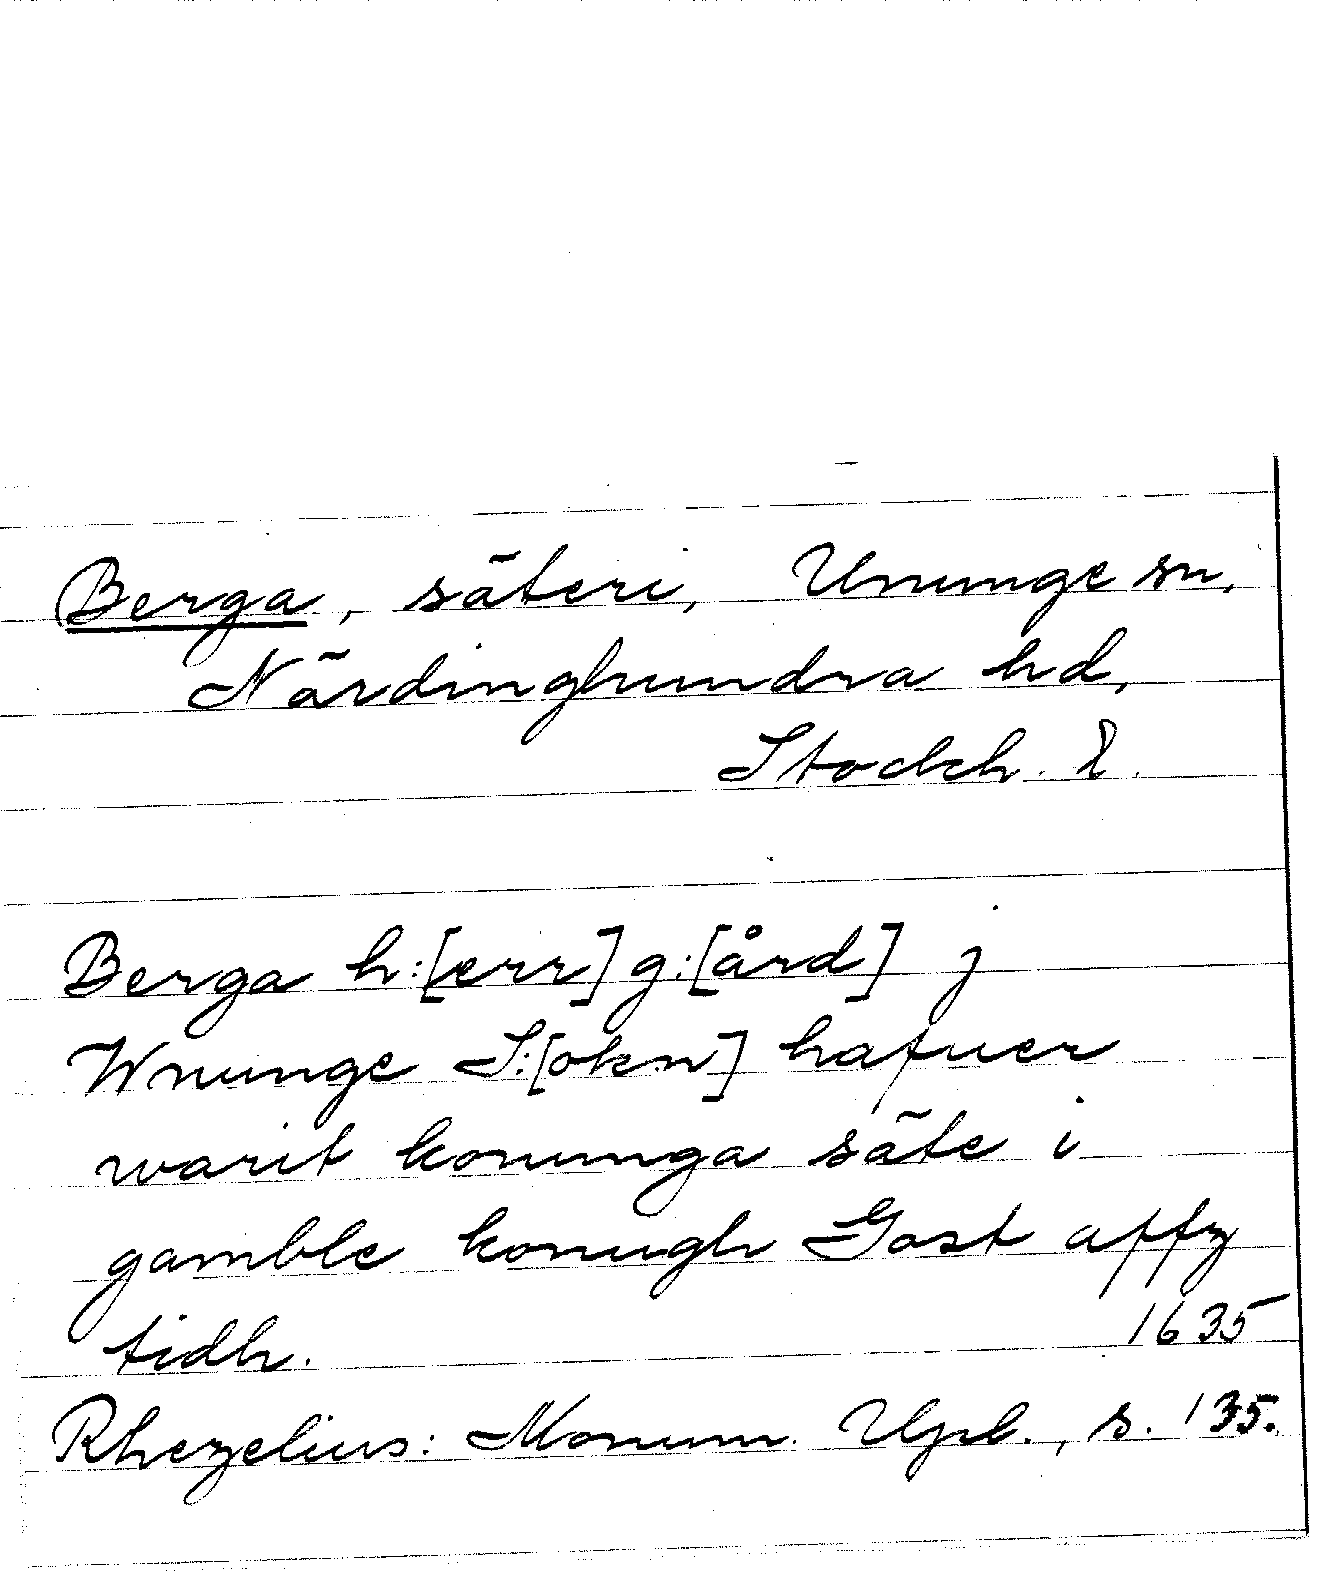 Berga, säteri, Ununge sn,
Närdinghundra hd,
Stockh. l.
Berga h:[err]g:[ård] j
Wnunge S:[okn] hafuer
warit konunga säte i
gamble konugh Gost affz
tidh. 1635
Rhezelius: Monum. Upl., s. 135.